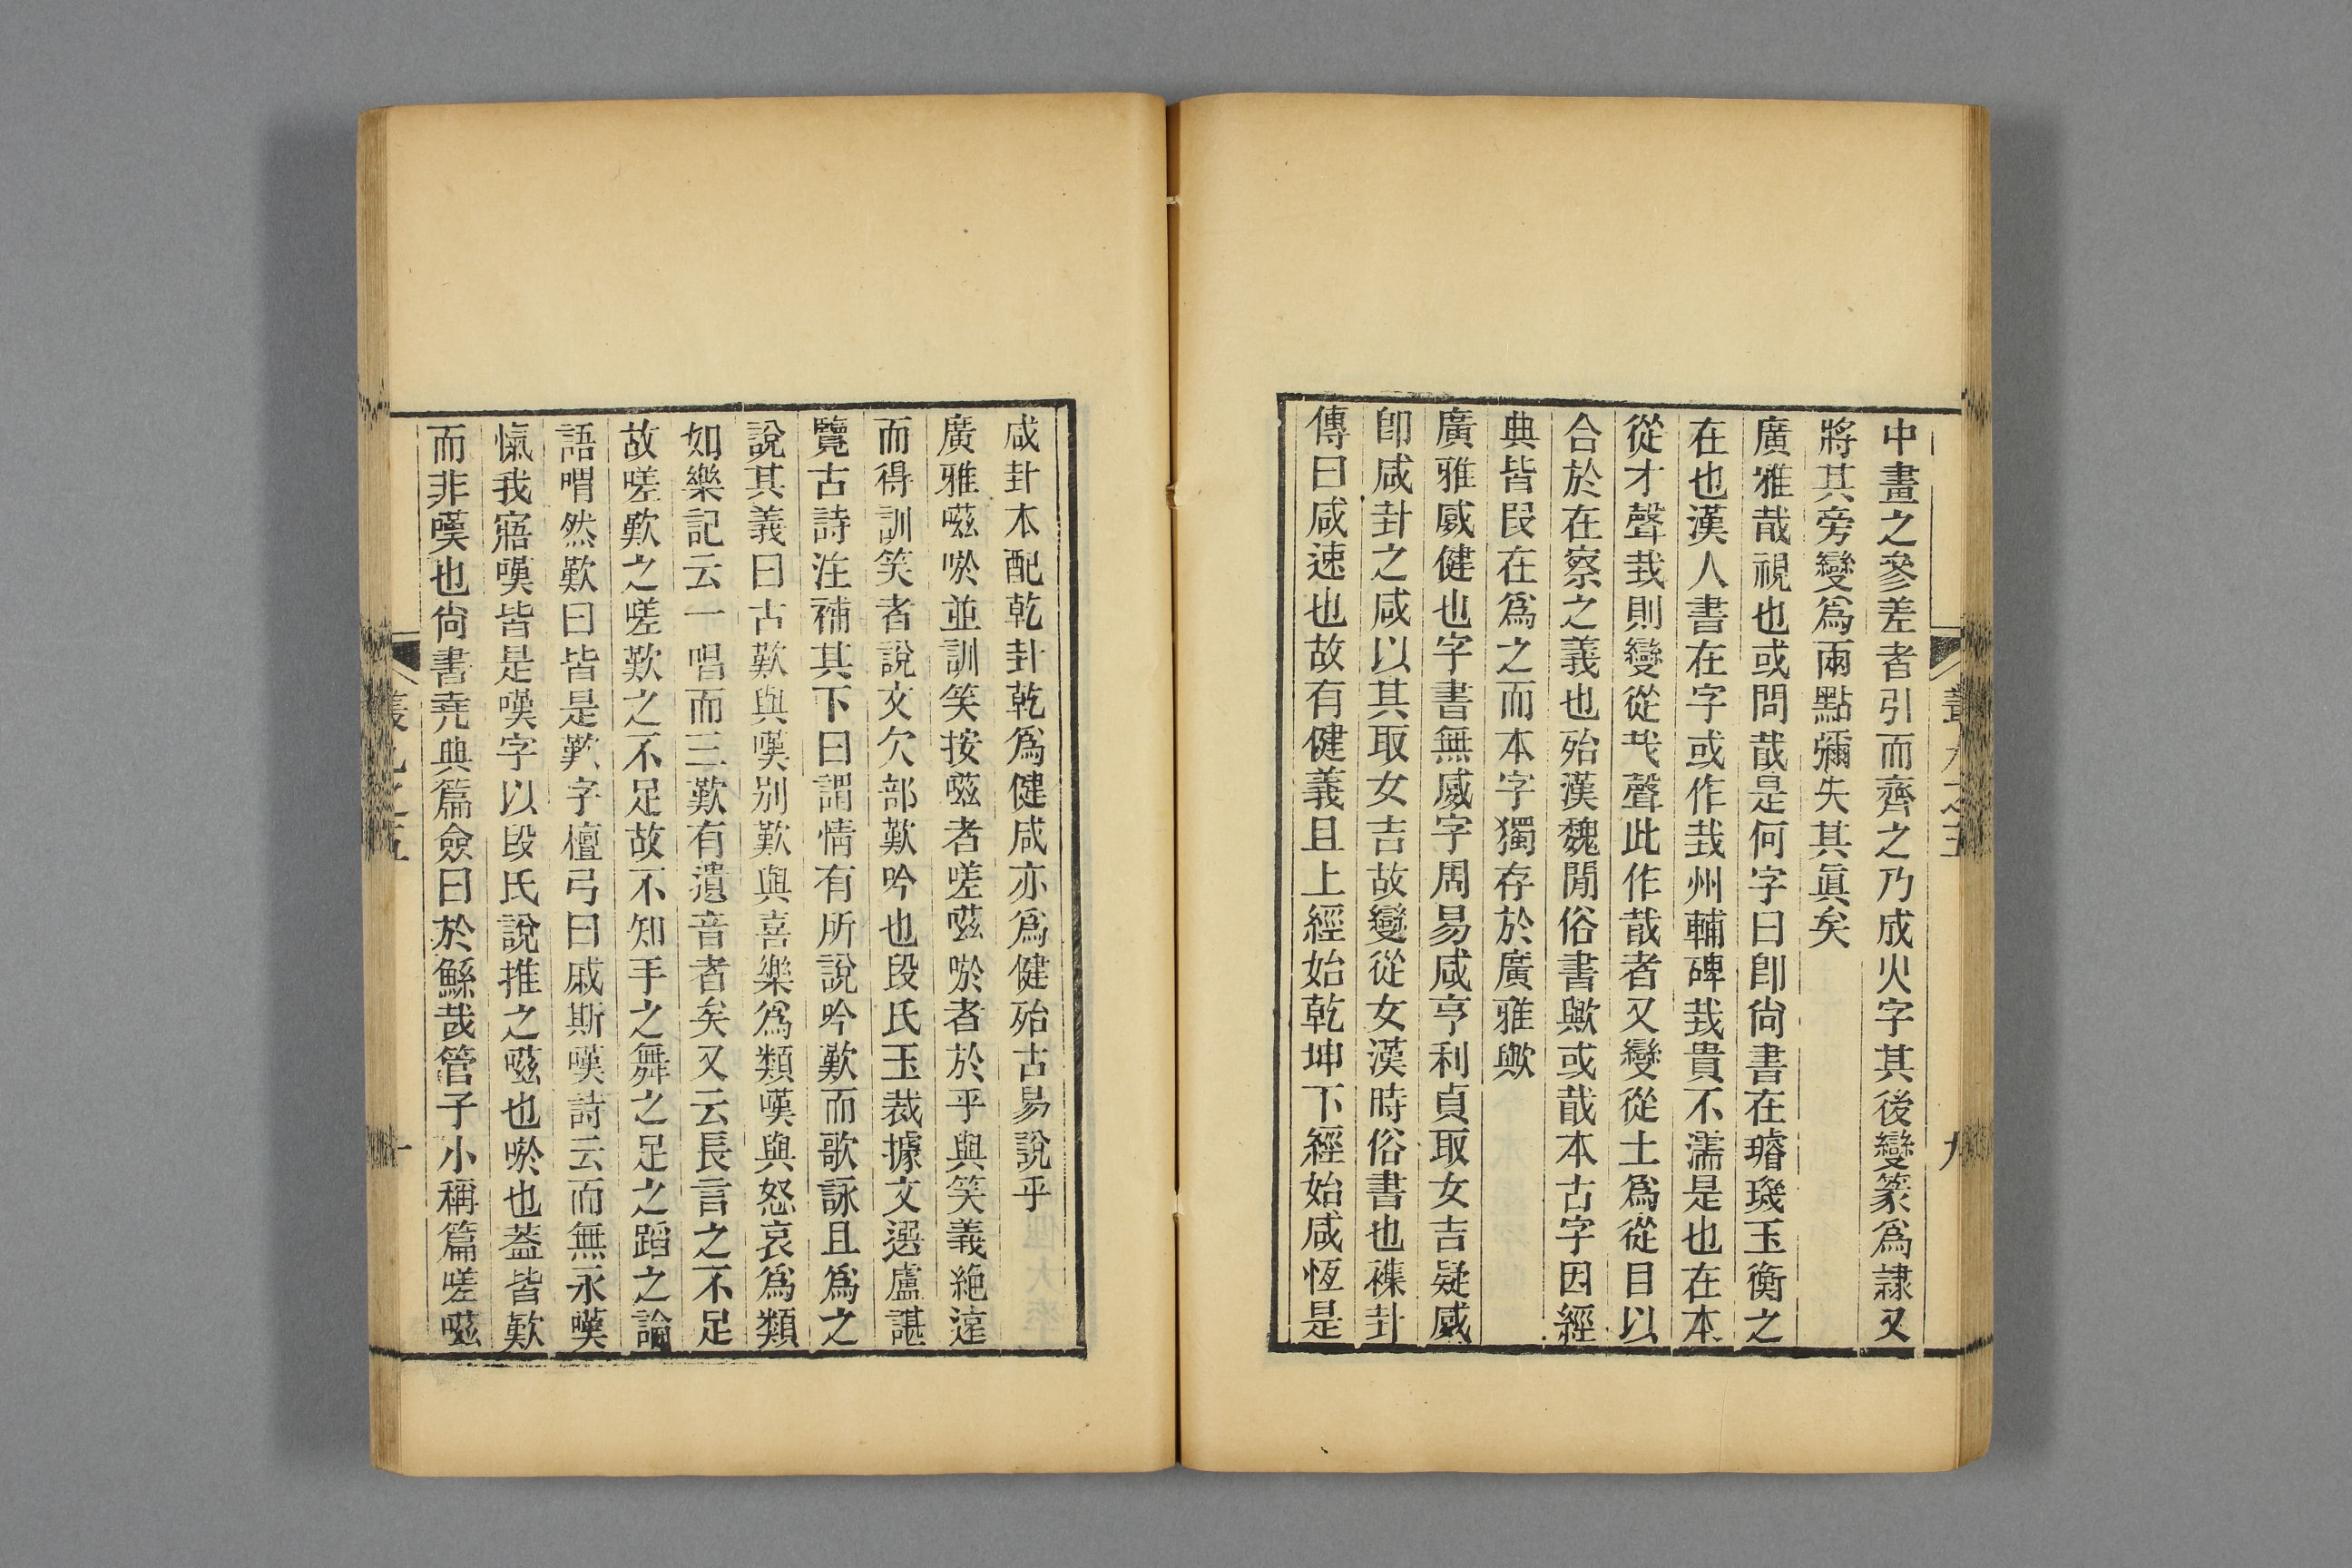 中畫之參差者引而齊之乃成火字其後變篆爲隷又
將其旁變爲兩點彌失其眞矣
廣雅㦲視也或問㦲是何字曰卽尙書在璿璣玉衡之
在也漢人書在字或作㘽州輔碑㘽貴不濡是也在本
從才聲㘽則變從𢦏聲此作㦲者又變從土爲從目以
合於在察之義也殆漢魏閒俗書歟或㦲本古字因經
典皆叚在爲之而本字獨存於廣雅歟
廣雅㛾健也字書無㛾字周易咸亨利貞取女吉疑㛾
卽咸卦之咸以其取女吉故變從女漢時俗書也襍卦
傳曰咸速也故有健義且上經始乾坤下經始咸恆是
咸卦本配乾卦乾爲健咸亦爲健殆古易說乎
廣雅嗞唹並訓笑按嗞者嗟嗞唹者於乎與笑義絶遠
而得訓笑者說文欠部歎吟也段氏玉裁據文選盧諶
覽古詩注補其下曰謂情有所說吟歎而歌詠且爲之
說其義曰古歎與嘆別歎與喜樂爲類嘆與怒哀爲類
如樂記云一唱而三歎有遺音者矣又云長言之不足
故嗟歎之嗟歎之不足故不知手之舞之足之蹈之論
語喟然歎曰皆是歎字檀弓曰戚斯嘆詩云而無永嘆
愾我寤嘆皆是嘆字以段氏說推之嗞也唹也葢皆歎
而非嘆也尙書堯典篇僉曰於鯀哉管子小稱篇嗟嗞